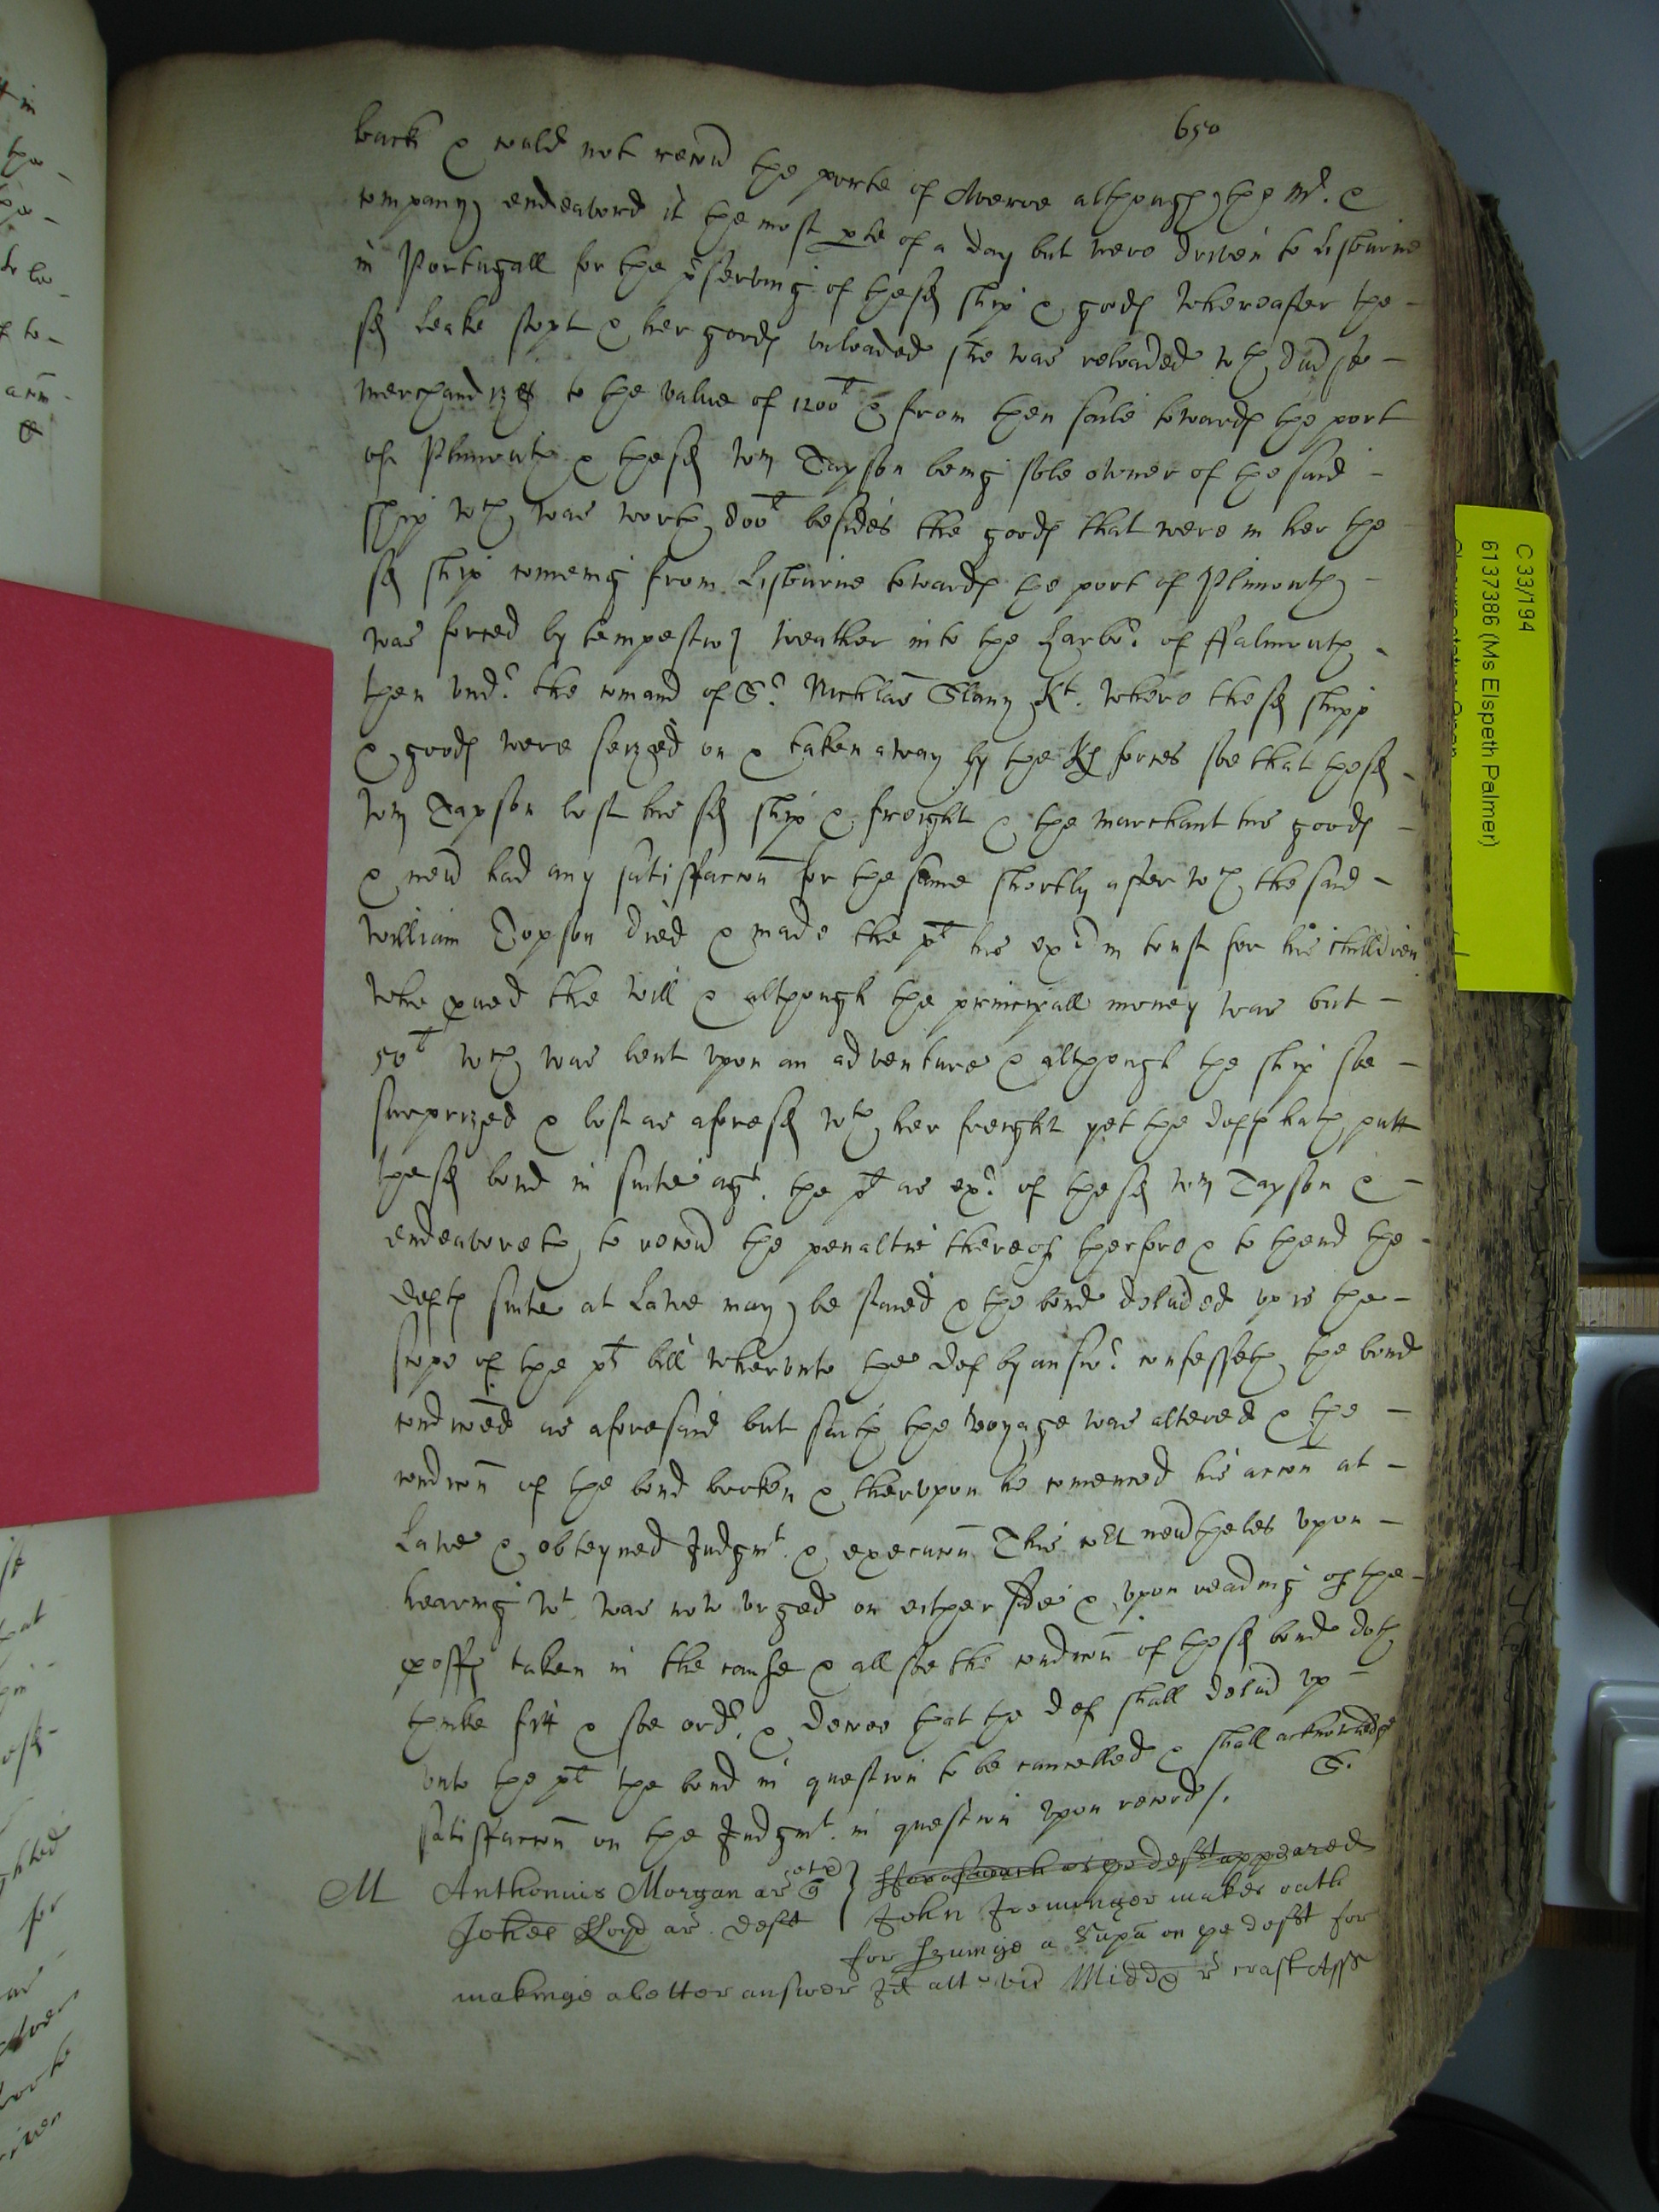 650
back & could not recou the porte of Averoe although the Mr. &
company endeavord it the most pte of a day but were driven to Lisburne
in Portugall for the pserving of the sd ship & goods whereafter the
sd Leake stopt & her goods unloaded she was reloaded wth
merchandizes to the value of 1200l & from then saile towards the port
of Plimouth & the sd Wm Tapson being sole owner of the said
ship wch was worth 800l besides the goods that were in her the
sd ship comeing from Lisburne towards the port of Plimouth
was forced by tempestuos weather into the harbor of ffalmouth
then vndr the comand of Sr Nichlas Slany Kt. where the sd shipp
& goods were seized on & taken away by the Ks forces soe that the sd
Wm Tapson lost his sd ship & freight & the marchant his goods
& neu had any satisfaccon for the same shortly after wch the said
William Topson died & made the plt his exr in trust for his children
who pued the will & although the principall money was but
50l wch was lent vpon an adventure & although the ship soe
surprized & lost as aforesd wth her freight yet the deft hath putt
the sd bond in suite agt. the plt as exr of the sd Wm Tapson &
endeavoreth to recou the penaltie thereof therfore & to thend the
defts suite at Lawe may be staied & the bond deliued vp is the
scope of the plts bill wherunto the def by answr confesseth the bond
condiconed as aforesaid but saith the voyage was altered & the
condicon of the bond broken & therupon he comenced his accon at
Lawe & obteyned Judgmt. & execucon This Cort neutheles vpon
hearing wt was now vrged on either side & vpon reading of the
proffs taken in the cause & allsoe the condicon of the sd bond doth
thinke fitt & soe ordr. & decree that the def shall deliu vp
vnto the plt the bond in question to be cancelled & shall acknowledge
satisfaccon on the Judgmt. in question vpon record /. S.
M Anthonius Morgan ar qr } appeared
Johes Lloyd ar deft } John Iremonger makes oath
for a Supa on ye deft for
makinge a better answer
C 33/194
6137386 (Ms Elspeth Palmer)